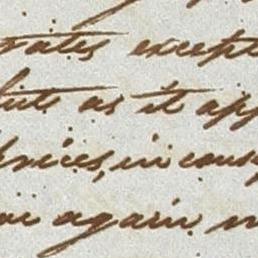 rates except
but as it app
prices, in cons
again